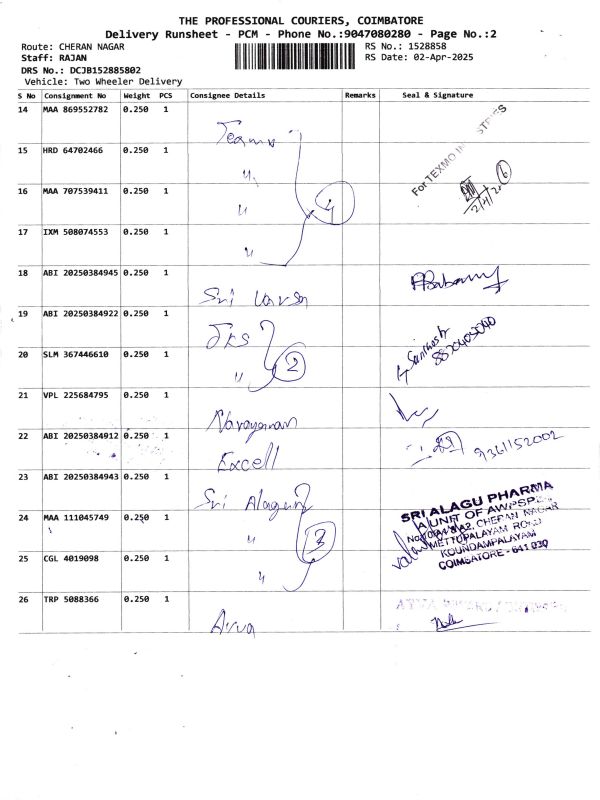 THE PROFESSIONAL COURIERS, COIMBATORE
Delivery Runsheet - PCM - Phone No.:9047080280 - Page No.:2
Route: CHERAN NAGAR
RS No.: 1528858
Staff: RAJAN
RS Date: 02-Apr-2025
DRS No.: DCJB152885802
Vehicle: Two Wheeler Delivery
S No Consignment No Weight PCS Consignee Details Remarks Seal & Signature
14 MAA 869552782 0.250 1
Texmo
For TEXMO INDUSTRIES
15 HRD 64702466 0.250 1
"
16 MAA 707539411 0.250 1
" 4
17 IXM 508074553 0.250 1
"
18 ABI 20250384945 0.250 1
Sri Varsa
19 ABI 20250384922 0.250 1
JKS
Santhosh
20 SLM 367446610 0.250 1
" 2
21 VPL 225684795 0.250 1
Narayanan
22 ABI 20250384912 0.250 1
Excell
9361152002
23 ABI 20250384943 0.250 1
Sri Alagu
SRI ALAGU PHARMA
A UNIT OF
24 MAA 111045749 0.250 1
" 3
CHERAN NAGAR
METTUPALAYAM ROAD
KOUNDAMPALAYAM
COIMBATORE - 641 030
25 CGL 4019098 0.250 1
"
26 TRP 5088366 0.250 1
Avva